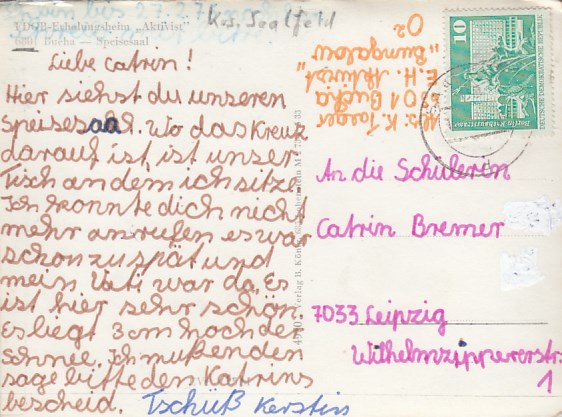 Krs. Saalfeld
FDGB-Erholungsheim „Aktivist"
6801 Bucha — Speisesaal
Liebe Catrin!
Hier siehst du unseren
Speisesaal. Wo das Kreuz
darauf ist, ist unser
Tisch an dem ich sitze.
Ich konnte dich nicht
mehr anrufen es war
schon zu spät und
mein Vati war da. Es
ist hier sehr schön.
Es liegt 3cm hoch de
Schnee. Ich mußenden
sage bitte den Katrins
bescheid. Tschüß Kerstin
K. Jaeger
6801 Bucha
E. H. „Aktivist"
„Bungalow"
02
10
DEUTSCHE DEMOKRATISCHE REPUBLIK
An die Schulerin
Catrin Bremer
7033 Leipzig
Wilhelmzippererstr.
1